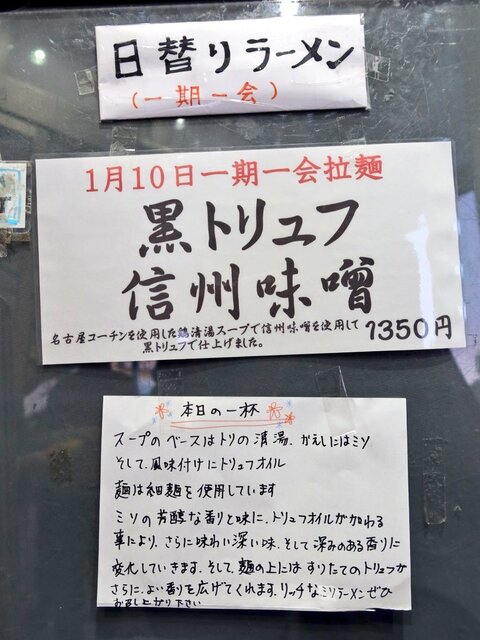 日替りラーメン
(一期一会)
1月10日一期一会拉麺
黒トリュフ
信州味噌
名古屋コーチンを使用した鶏清湯スープで信州味噌を使用して
黒トリュフで仕上げました。
1350円
本日の一杯
スープのベースはトリの清湯、かえしにはミソ
そして、風味付けにトリュフオイル
麺は細麺を使用しています
ミソの芳醇な香りと味に、トリュフオイルが加わる
事により、さらに味わい深い味、そして深みのある香りに
変化していきます。そして、麺の上にはすりたてのトリュフが
さらに、よい香りを広げてくれます。リッチなミソラーメンぜひ
お召し上がり下さい